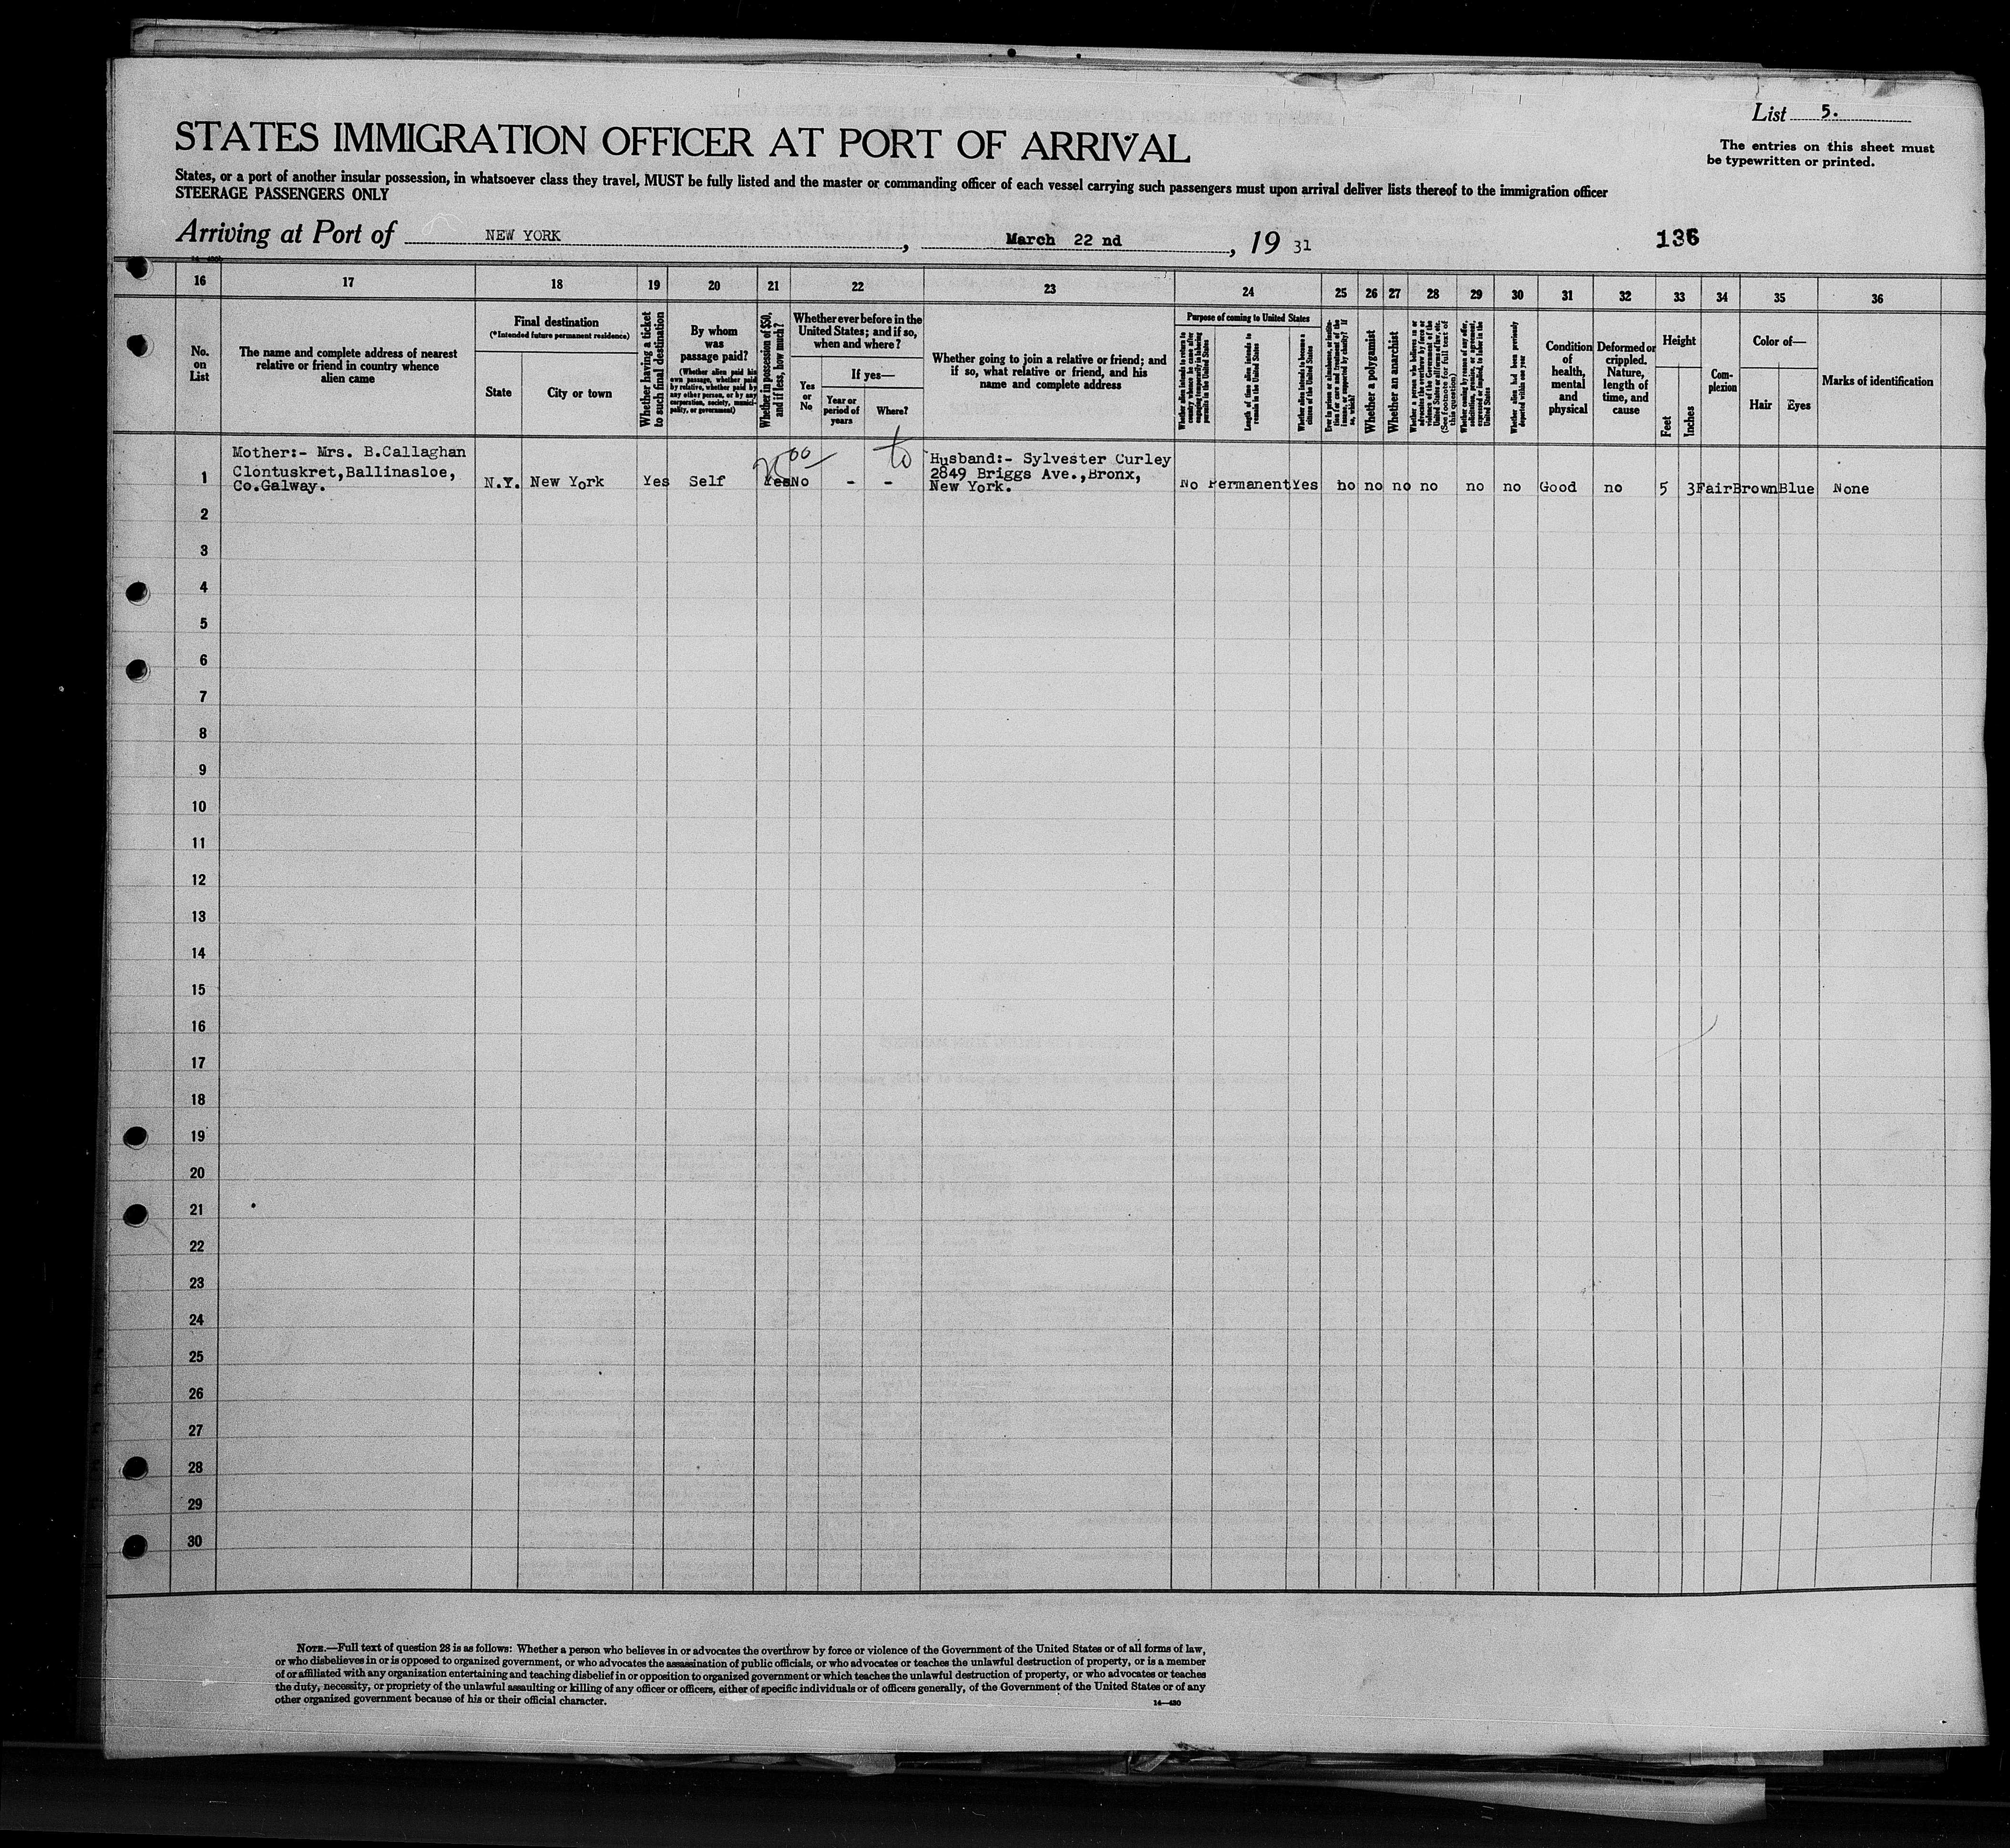 List 5.
STATES IMMIGRATION OFFICER AT PORT OF ARRIVAL
The entries on this sheet must
be typewritten or printed.
States, or a port of another insular possession, in whatsoever class they travel, MUST be fully listed and the master or commanding officer of each vessel carrying such passengers must upon arrival deliver lists thereof to the immigration officer
STEERAGE PASSENGERS ONLY
Arriving at Port of NEW YORK, March 22 nd, 19 31
136
16 17 18 19 20 21 22 23 24 25 26 27 28 29 30 31 32 33 34 35 36
No.
on
List
The name and complete address of nearest
relative or friend in country whence
alien came
Final destination
(*Intended future permanent residence)
State
City or town
Whether having a ticket
to such final destination
By whom
was
passage paid?
(Whether alien paid his
own passage, whether paid
by relative, whether paid by
any other person, or by any
corporation, society, munici-
pality, or government)
Whether in possession of $50,
and if less, how much?
Whether ever before in the
United States; and if so,
when and where?
Yes
or
No
If yes—
Year or
period of
years
Where?
Whether going to join a relative or friend; and
if so, what relative or friend, and his
name and complete address
Purpose of coming to United States
Whether alien intends to return to
country whence he came after
engaging temporarily in laboring
pursuits in the United States
Length of time alien intends to
remain in the United States
Whether alien intends to become a
citizen of the United States
Ever in prison or almshouse, or institu-
tion for care and treatment of the
insane, or supported by charity? If
so, which?
Whether a polygamist
Whether an anarchist
Whether a person who believes in or
advocates the overthrow by force or
violence of the Government of the
United States or all forms of law, etc.
(See footnote for full text of
this question)
Whether coming by reason of any offer,
solicitation, promise, or agreement,
expressed or implied, to labor in the
United States
Whether alien had been previously
deported within one year
Condition
of
health,
mental
and
physical
Deformed or
crippled.
Nature,
length of
time, and
cause
Height
Feet
Inches
Com-
plexion
Color of—
Hair
Eyes
Marks of identification
Mother:- Mrs. B.Callaghan
Clontuskret,Ballinasloe,
Co.Galway.
00
to
Husband:- Sylvester Curley
2849 Briggs Ave.,Bronx,
New York.
1 N.Y. New York Yes Self Yes No - - No Permanent Yes no no no no no no Good no 5 3 Fair Brown Blue None
2
3
4
5
6
7
8
9
10
11
12
13
14
15
16
17
18
19
20
21
22
23
24
25
26
27
28
29
30
NOTE.—Full text of question 28 is as follows: Whether a person who believes in or advocates the overthrow by force or violence of the Government of the United States or of all forms of law,
or who disbelieves in or is opposed to organized government, or who advocates the assassination of public officials, or who advocates or teaches the unlawful destruction of property, or is a member
of or affiliated with any organization entertaining and teaching disbelief in or opposition to organized government or which teaches the unlawful destruction of property, or who advocates or teaches
the duty, necessity, or propriety of the unlawful assaulting or killing of any officer or officers, either of specific individuals or of officers generally, of the Government of the United States or of any
other organized government because of his or their official character.
14—430